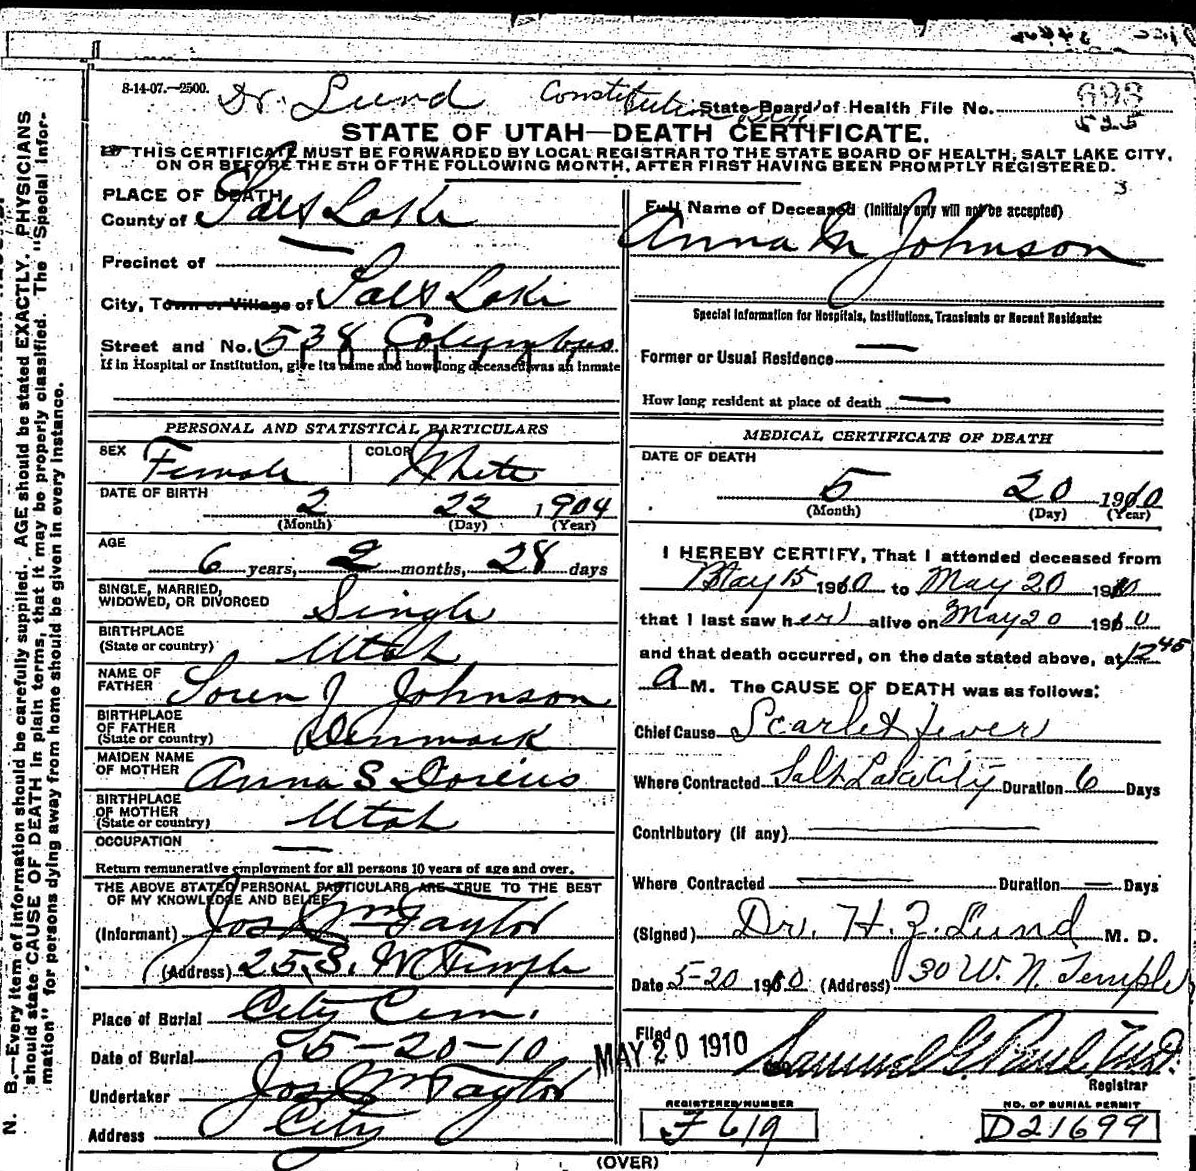 8-14-07.—2500.
Dr. Lund Constitution
State Board of Health File No. 693
STATE OF UTAH—DEATH CERTIFICATE.
THIS CERTIFICATE MUST BE FORWARDED BY LOCAL REGISTRAR TO THE STATE BOARD OF HEALTH, SALT LAKE CITY,
ON OR BEFORE THE 5TH OF THE FOLLOWING MONTH, AFTER FIRST HAVING BEEN PROMPTLY REGISTERED.
PLACE OF DEATH
County of Salt Lake
Precinct of —
City, Town or Village of Salt Lake
Street and No. 538 Columbus
If in Hospital or Institution, give its name and how long deceased was an inmate
PERSONAL AND STATISTICAL PARTICULARS
SEX Female COLOR White
DATE OF BIRTH 2 22 1904
(Month) (Day) (Year)
AGE
6 years, 2 months, 28 days
SINGLE, MARRIED,
WIDOWED, OR DIVORCED Single
BIRTHPLACE
(State or country) Utah
NAME OF
FATHER Soren J Johnson
BIRTHPLACE
OF FATHER
(State or country) Denmark
MAIDEN NAME
OF MOTHER Anna S Dorius
BIRTHPLACE
OF MOTHER
(State or country) Utah
OCCUPATION —
Return remunerative employment for all persons 10 years of age and over.
THE ABOVE STATED PERSONAL PARTICULARS ARE TRUE TO THE BEST
OF MY KNOWLEDGE AND BELIEF
(Informant) Jos Wm Taylor
(Address) 25 S. W Temple
Place of Burial City Cem.
Date of Burial 5-20-10
Undertaker Jos Wm Taylor
Address City
3
Full Name of Deceased (Initials only will not be accepted)
Anna M Johnson
Special Information for Hospitals, Institutions, Transients or Recent Residents:
Former or Usual Residence —
How long resident at place of death —
MEDICAL CERTIFICATE OF DEATH
DATE OF DEATH
5 20 1910
(Month) (Day) (Year)
I HEREBY CERTIFY, That I attended deceased from
May 15 1910 to May 20 1910
that I last saw her alive on May 20 1910
and that death occurred, on the date stated above, at 12 45
A M. The CAUSE OF DEATH was as follows:
Chief Cause Scarlet fever
Where Contracted Salt Lake City Duration 6 Days
Contributory (if any) —
Where Contracted — Duration — Days
(Signed) Dr. H. Z. Lund M. D.
Date 5-20 1910 (Address) 30 W. N. Temple
Filed MAY 20 1910 Samuel G. Paul, M.D.
Registrar
REGISTERED NUMBER
F 619
NO. OF BURIAL PERMIT
D21699
(OVER)
N. B.—Every item of information should be carefully supplied. AGE should be stated EXACTLY. PHYSICIANS
should state CAUSE OF DEATH in plain terms, that it may be properly classified. The "Special Infor-
mation" for persons dying away from home should be given in every instance.